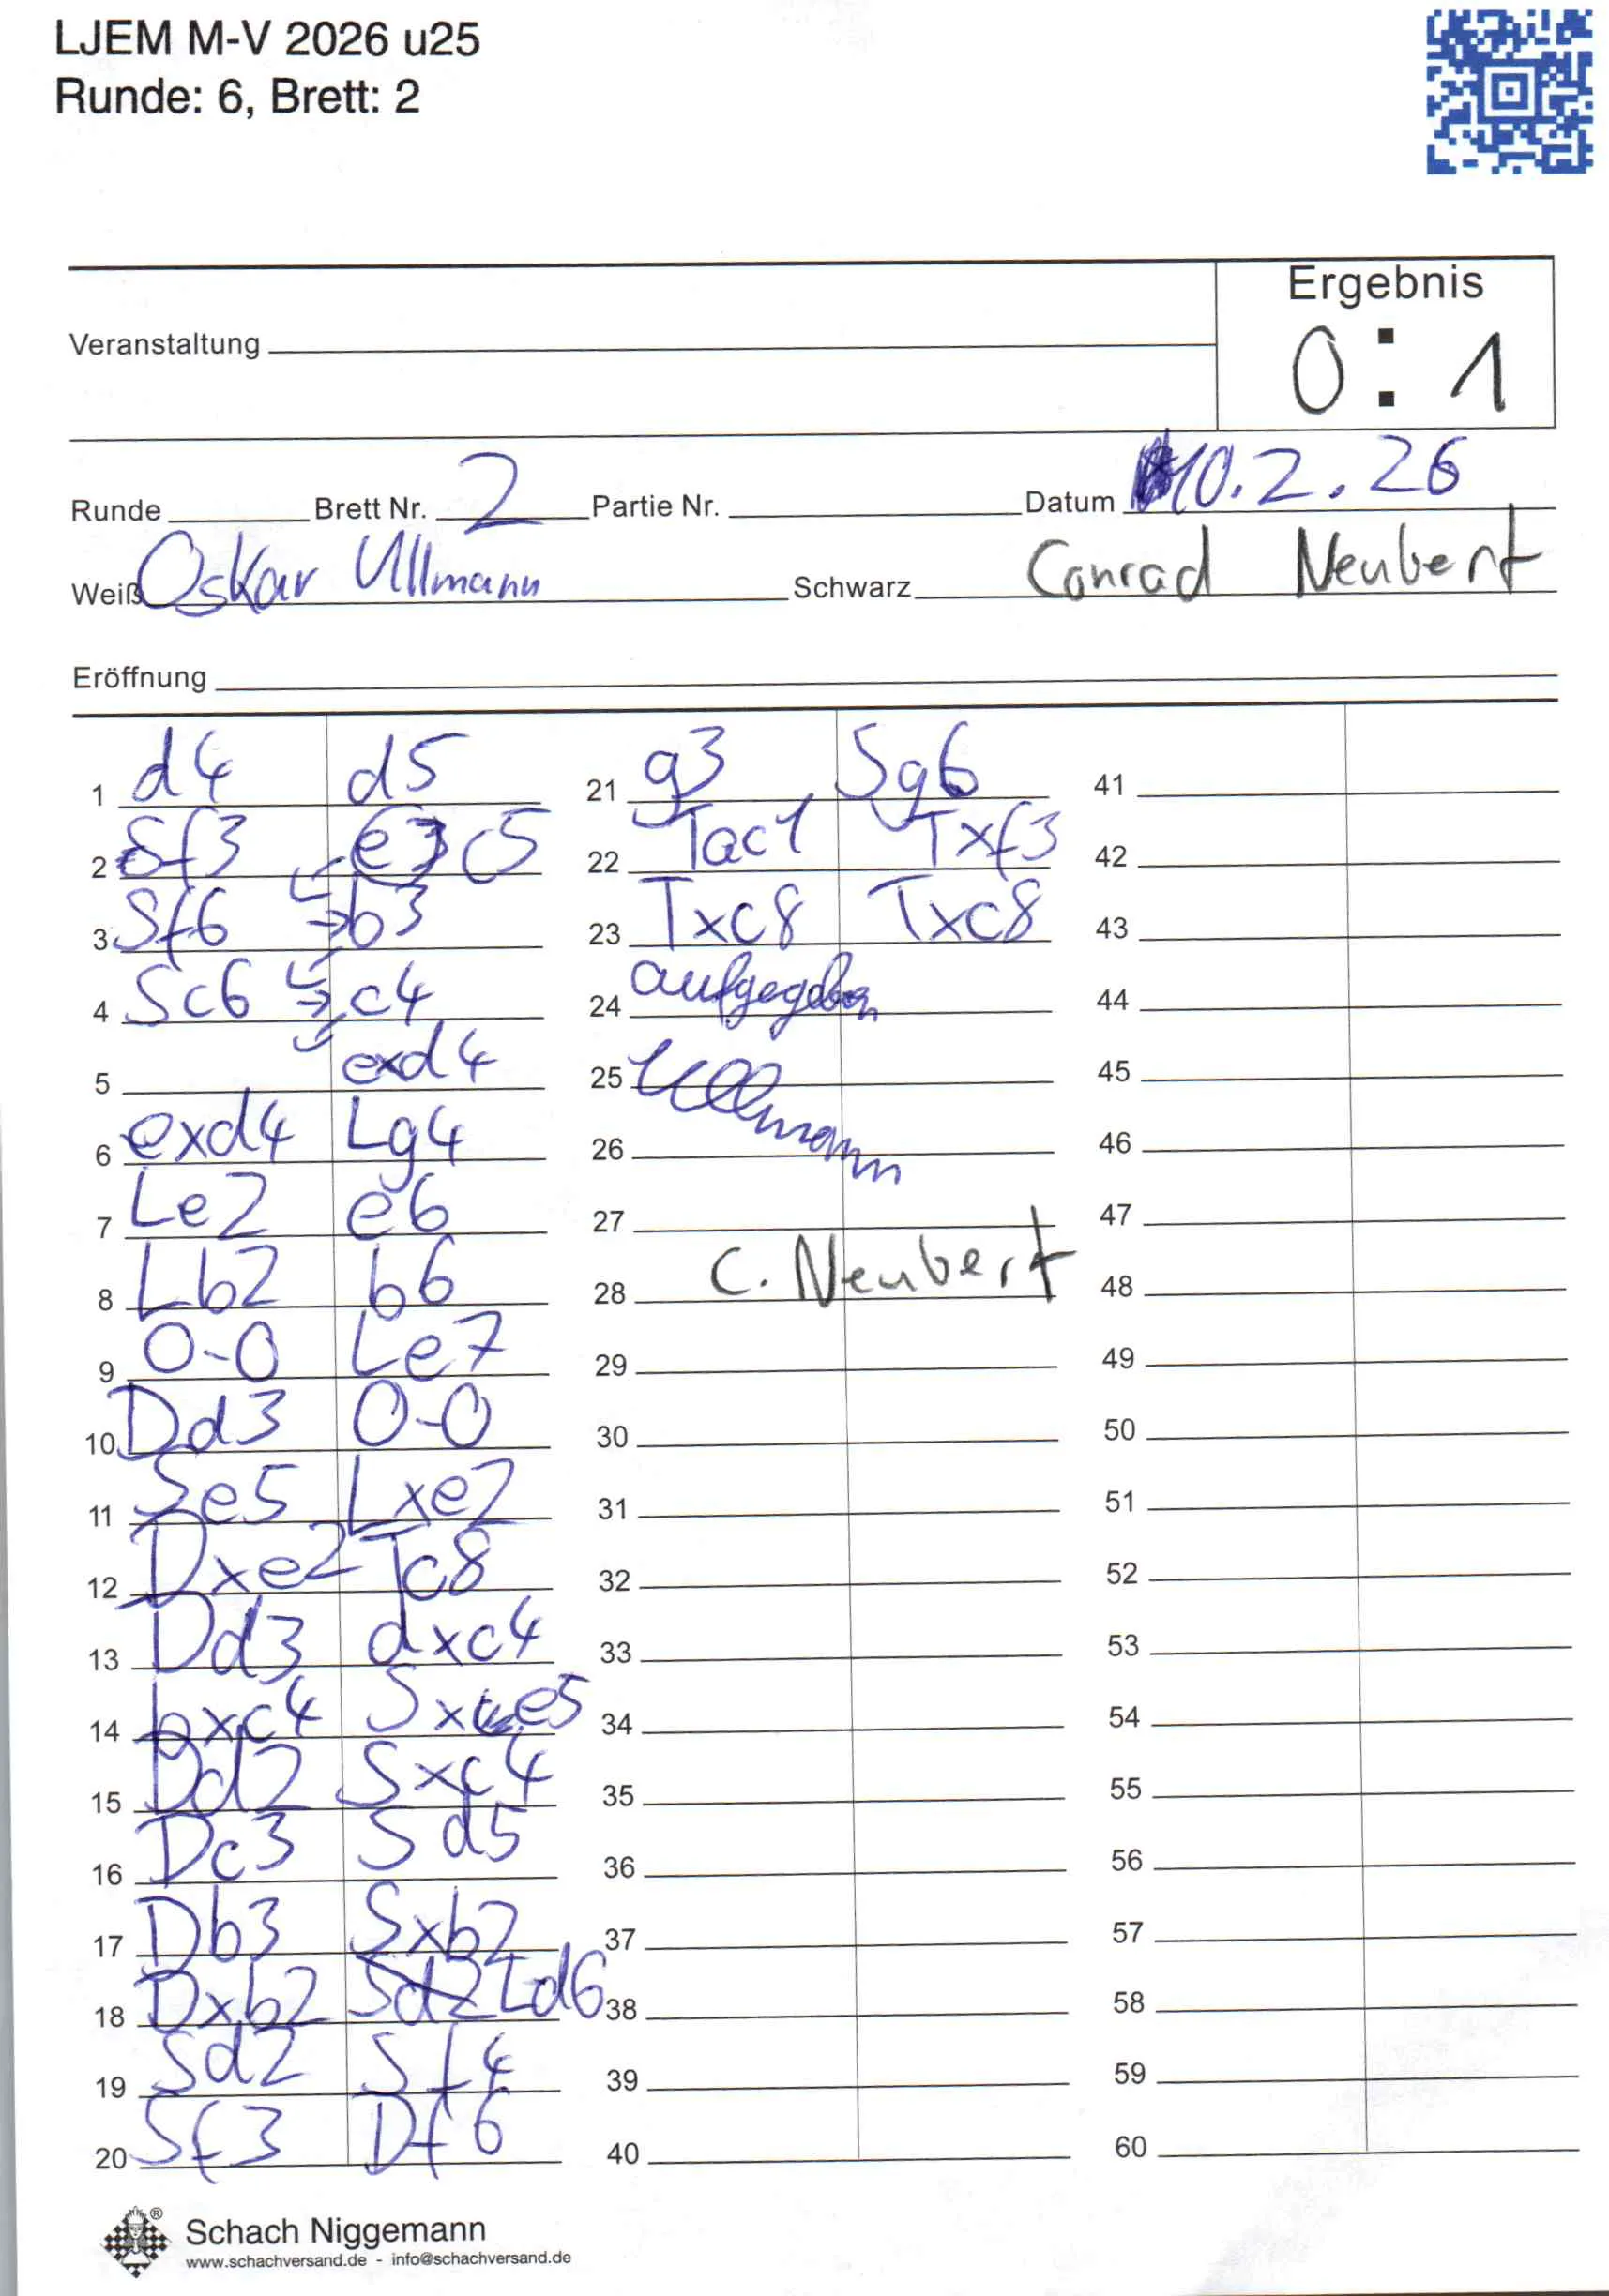 LJEM M-V 2026 u25
Runde: 6, Brett: 2
Ergebnis
0 : 1
Veranstaltung
Runde Brett Nr. 2 Partie Nr. Datum 10.2.26
Weiß Oskar Ullmann Schwarz Conrad Neubert
Eröffnung
1 d4 d5 21 g3 Sg6 41
2 Sf3 c5 22 Tac1 Txf3 42
3 Sf6 b3 23 Txc8 Txc8 43
4 Sc6 c4 24 aufgegeben 44
5 exd4 25 Ullmann 45
6 exd4 Lg4 26 46
7 Le2 e6 27 47
8 Lb2 b6 28 C. Neubert 48
9 0-0 Le7 29 49
10 Dd3 0-0 30 50
11 Se5 Lxe2 31 51
12 Dxe2 Tc8 32 52
13 Dd3 dxc4 33 53
14 bxc4 Sxe5 34 54
15 Dd2 Sxc4 35 55
16 Dc3 Sd5 36 56
17 Db3 Sxb2 37 57
18 Dxb2 Sd2 Ld6 38 58
19 Sd2 Sf4 39 59
20 Sf3 Df6 40 60
Schach Niggemann
www.schachversand.de - info@schachversand.de